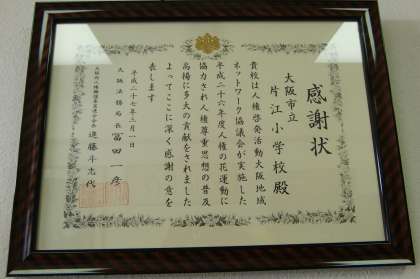 感謝状
大阪市立
片江小学校殿
貴校は人権啓発活動大阪地域
ネットワーク協議会が実施した
平成二十六年度人権の花運動に
協力され人権尊重思想の普及
高揚に多大の貢献をされました
よってここに深く感謝の意を
表します
平成二十七年三月一日
大阪法務局長 冨田一彦